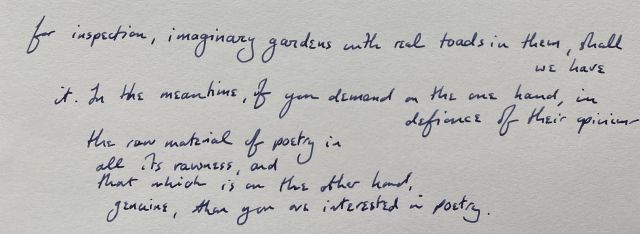 for inspection, imaginary gardens with real toads in them, shall
we have
it. In the meantime, if you demand on the one hand, in
defiance of their opinion
the raw material of poetry in
all its rawness, and
that which is on the other hand,
genuine, then you are interested in poetry.